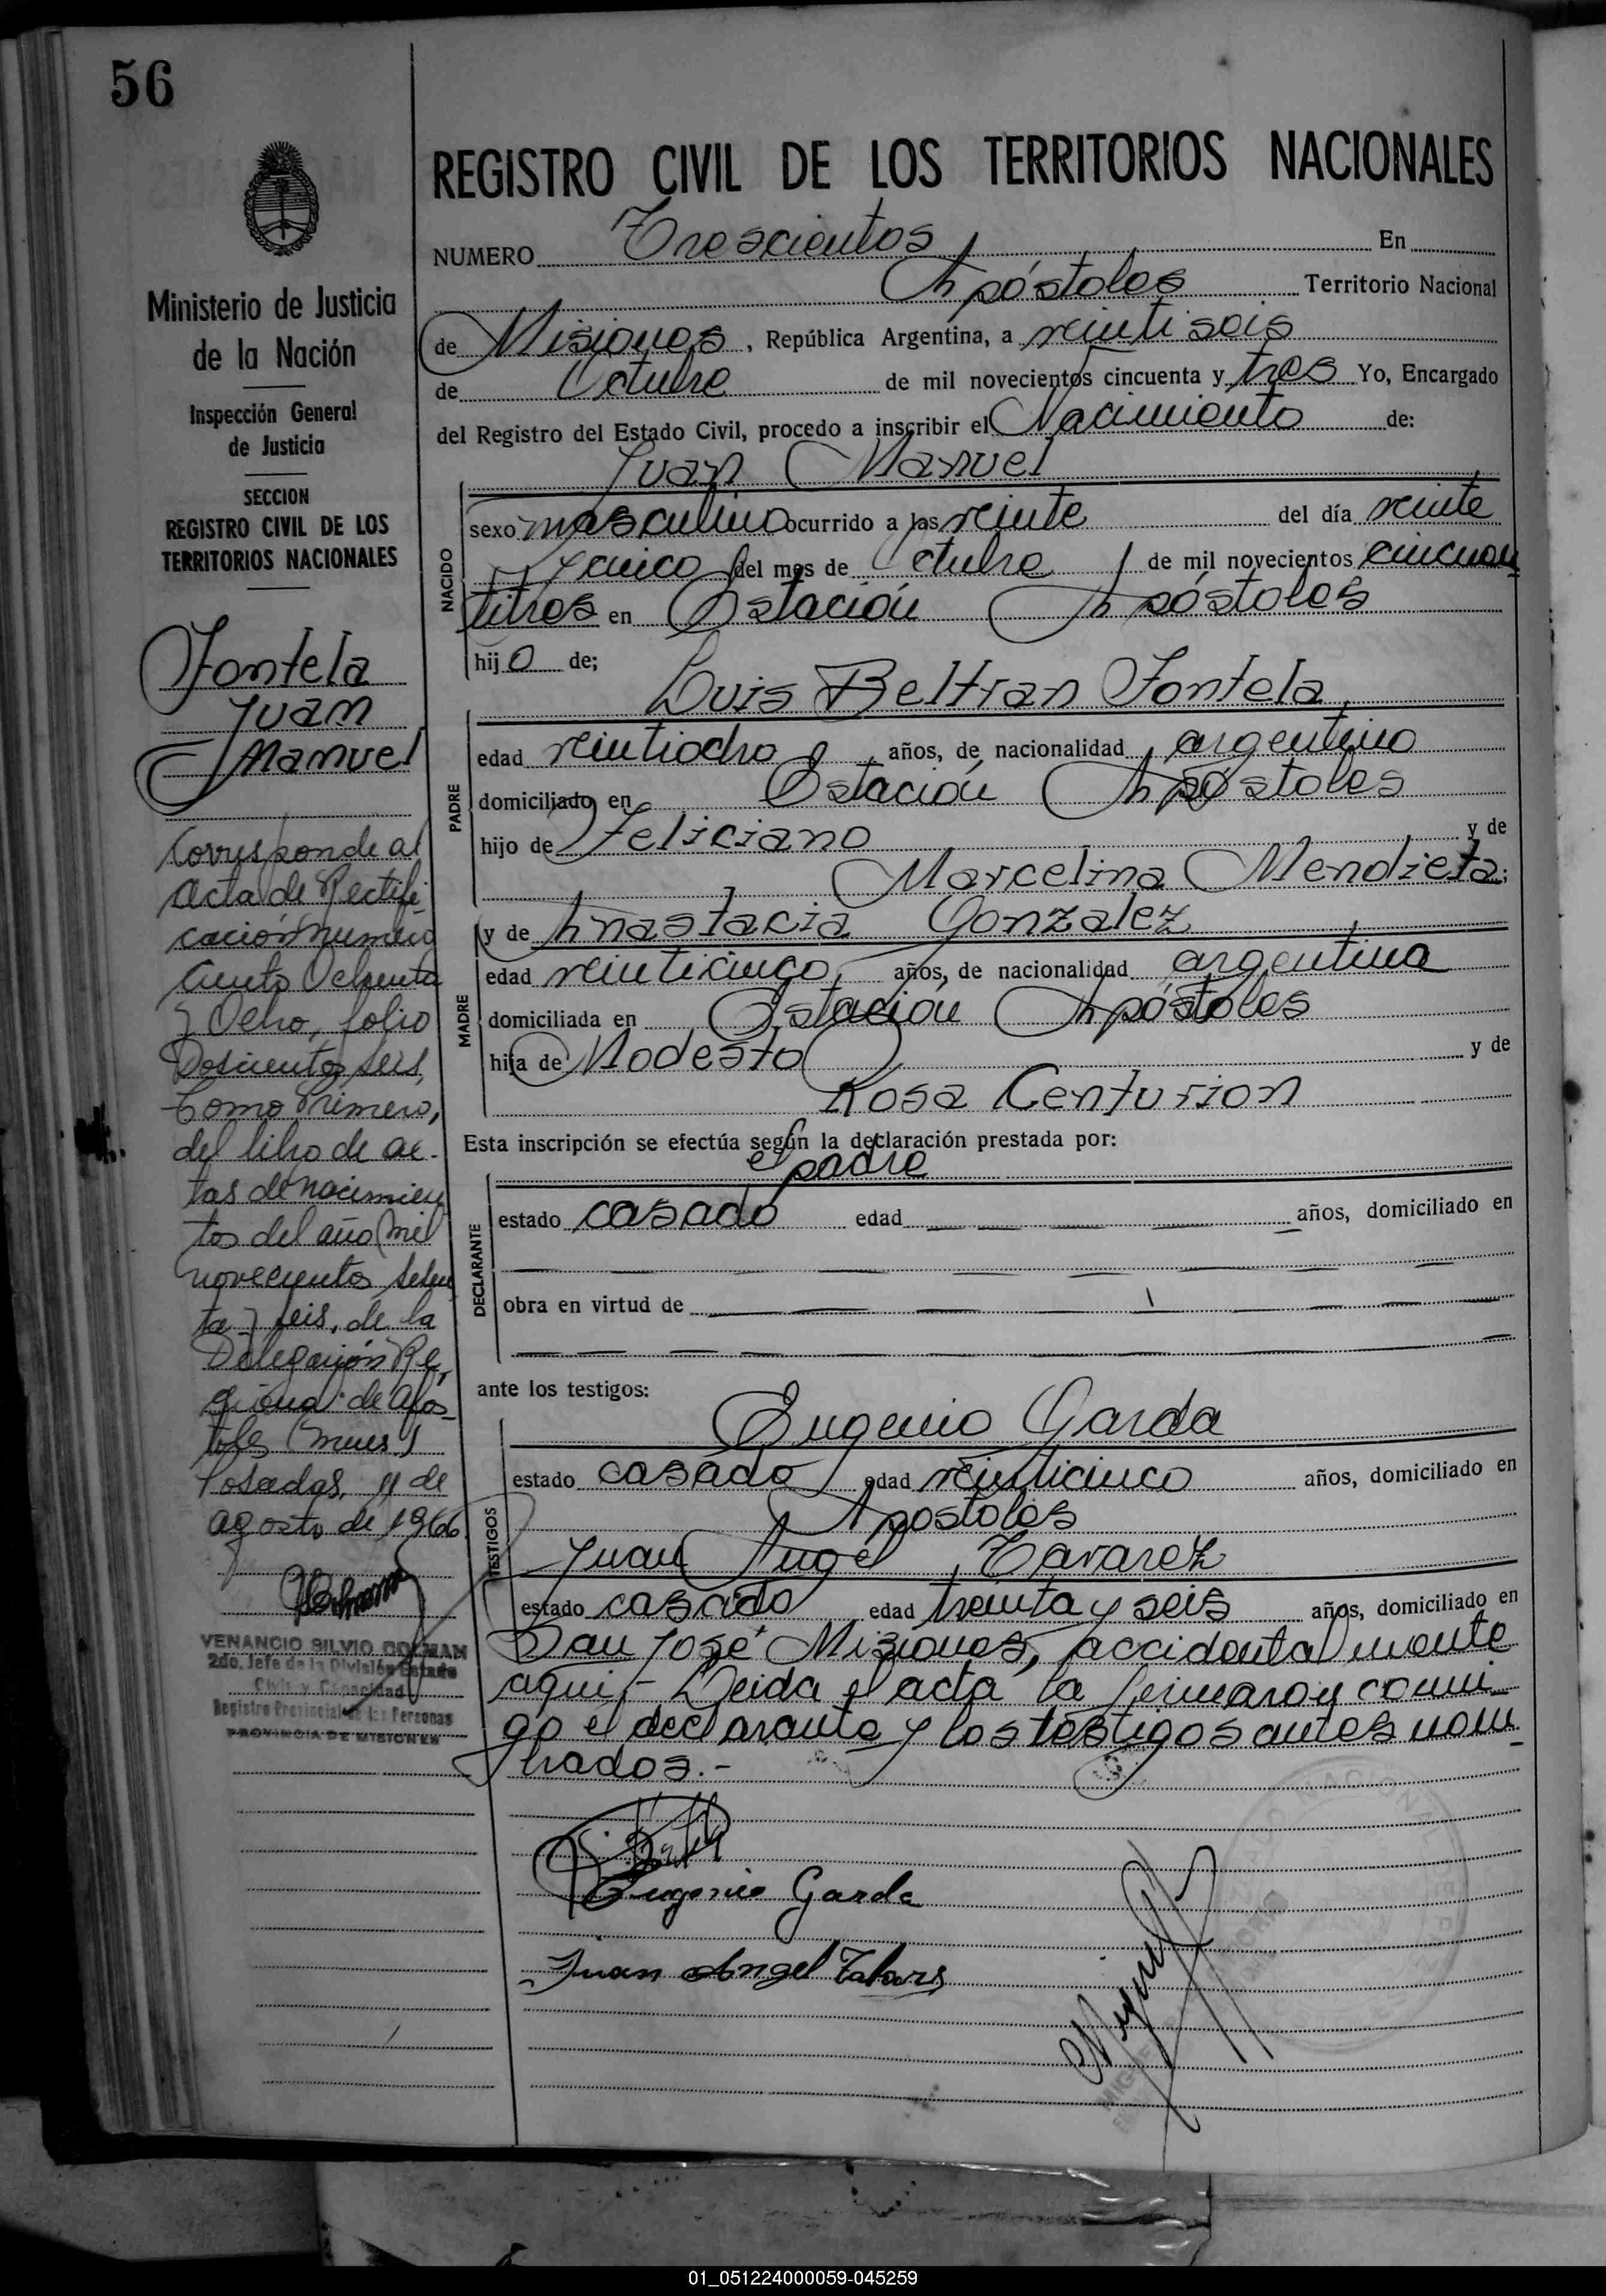 56
REGISTRO CIVIL DE LOS TERRITORIOS NACIONALES
NUMERO Trescientos En
Apóstoles Territorio Nacional
de Misiones, República Argentina, a veintiseis
de Octubre de mil novecientos cincuenta y tres Yo, Encargado
del Registro del Estado Civil, procedo a inscribir el Nacimiento de:
Juan Manuel
NACIDO
sexo masculino ocurrido a las veinte del día veinte
y cinco del mes de Octubre de mil novecientos cincuen
titres en Estación Apóstoles
hijo de;
Luis Beltran Fontela
PADRE
edad veintiocho años, de nacionalidad argentino
domiciliado en Estación Apóstoles
hijo de Feliciano y de
Marcelina Mendieta;
y de Anastacia Gonzalez
MADRE
edad veinticinco, años, de nacionalidad argentina
domiciliada en Estación Apóstoles
hija de Modesto y de
Rosa Centurion
Esta inscripción se efectúa según la declaración prestada por:
el padre
DECLARANTE
estado casado edad años, domiciliado en
obra en virtud de
ante los testigos:
Eugenio Garda
TESTIGOS
estado casado edad veinticinco años, domiciliado en
Apostoles
Juan Angel Tavarez
estado casado edad treinta y seis años, domiciliado en
San José Misiones, accidentalmente
aqui,- Leida el acta la firmaron conmi-
go el declarante y los testigos antes nom-
brados.-
Eugenio Garda
Juan Angel
Ministerio de Justicia
de la Nación
Inspección General
de Justicia
SECCION
REGISTRO CIVIL DE LOS
TERRITORIOS NACIONALES
Fontela
Juan
Manuel
Corresponde al
Acta de Rectifi-
cación numero
Ciento Ochenta
y Ocho, folio
Doscientos seis,
Tomo Primero,
del libro de ac-
tas de nacimien
tos del año mil
novecientos sesen
ta y seis, de la
Delegación Re-
gional de Apos-
toles (mnes)
Posadas, 11 de
agosto de 1966
VENANCIO SILVIO COLMAN
2do. Jefe de la División Estado
Civil y Capacidad
Registro Provincial de las Personas
PROVINCIA DE MISIONES
01_051224000059-045259